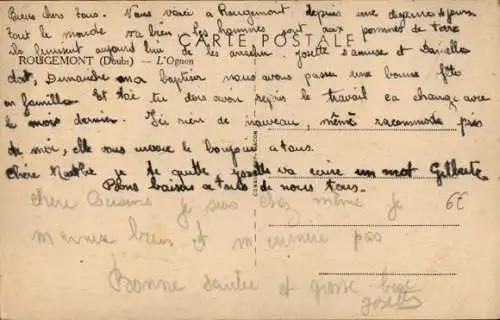 Biens chers tous. Nous voici à Rougemont depuis une dizaine de jours
tout le monde va bien les hommes sont aux pommes de terre
ils finissent aujourd'hui de les arracher. Josette s'amuse et Danielle
CARTE POSTALE
ROUGEMONT (Doubs) — L'Ognon
dort, Dimanche au baptême nous avons passé une bonne fête
en famille. Et toi tu dois avoir repris le travail ça change avec
le mois dernier. Ici rien de nouveau, même raccommode près
de moi, elle vous envoie le bonjour à tous.
Chère je te quitte Josette va écrire un mot Gilberte.
Bons baisers à tous de nous tous.
chère cousine je suis chez même je 6€
bien et m pas
Bonne santée et grosse bise
Josette